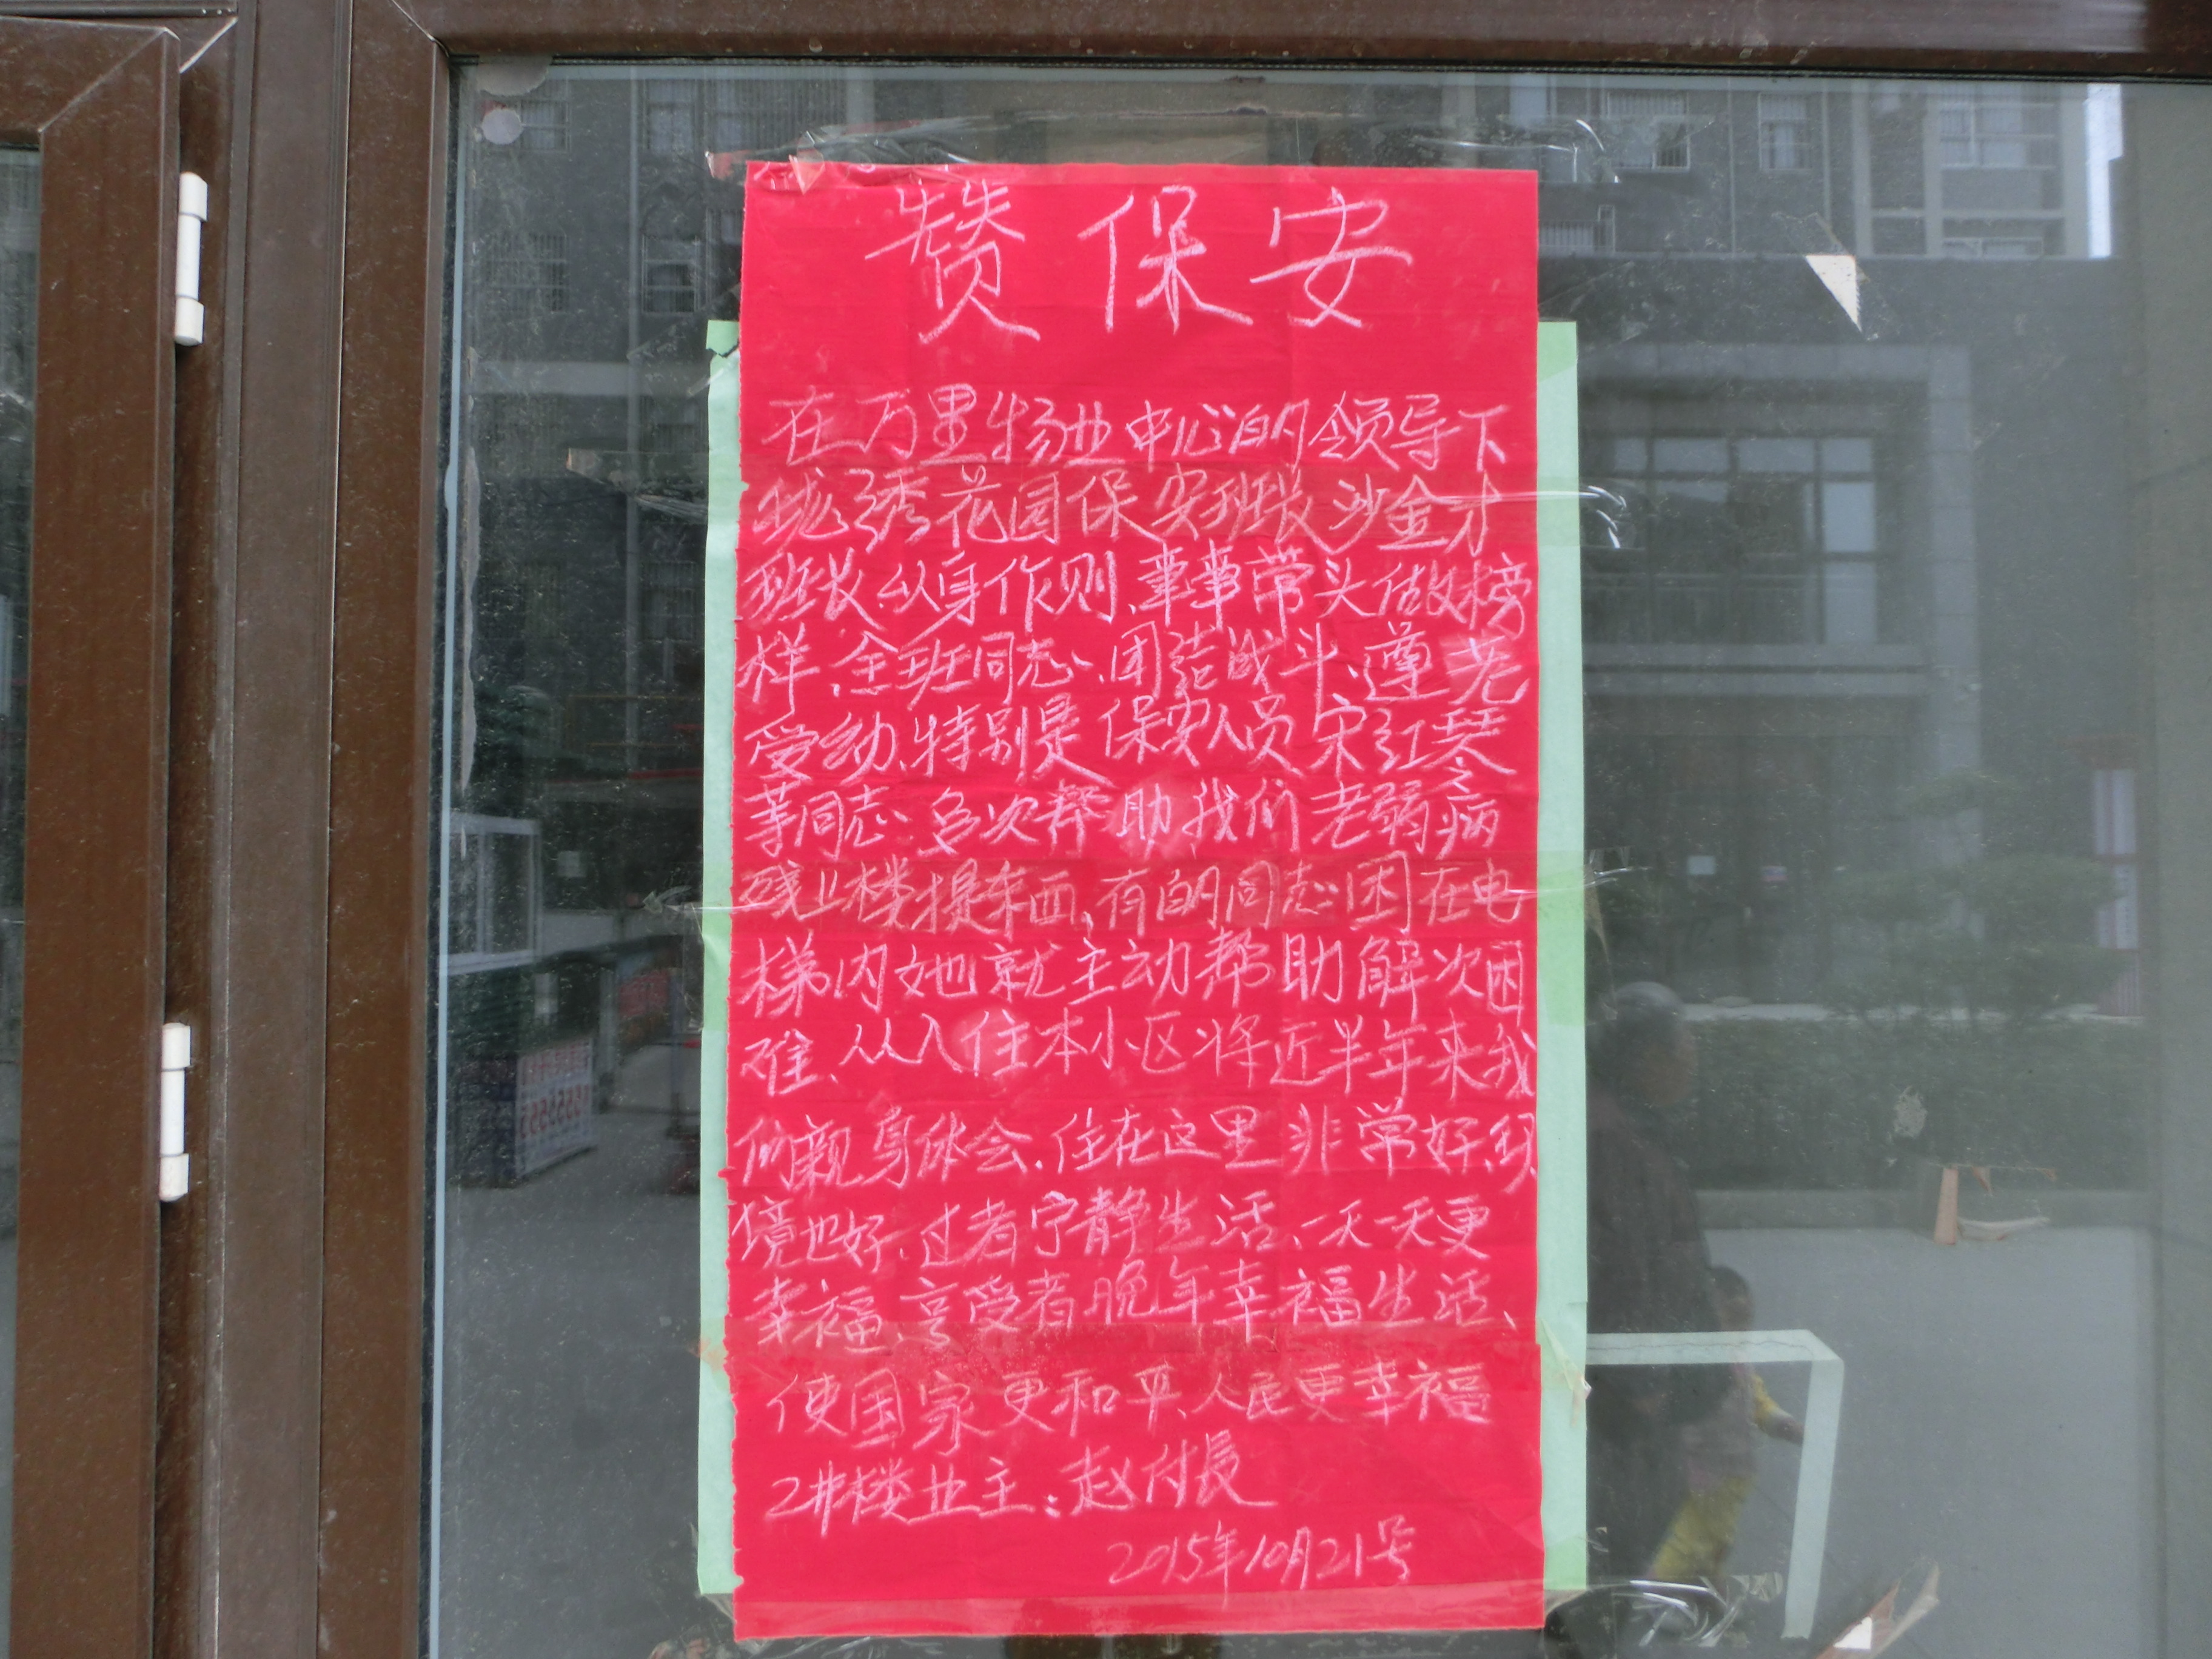 赞保安
在万里物业中心的领导下
珑绣花园保安班长沙金才
班长.以身作则、事事带头做榜
样.全班同志、团结战斗、遵老
爱幼、特别是保安人员宋红琴
等同志多次帮助我们老弱病
残上楼提东西、有的同志困在电
梯内她就主动帮助解决困
难、从入住本小区将近半年来我
们亲身体会.住在这里非常好.环
境也好.过者宁静生活、一天一天更
幸福、享受着晚年幸福生活、
使国家更和平、人民更幸福
2井楼业主:赵付長
2015年10月21号